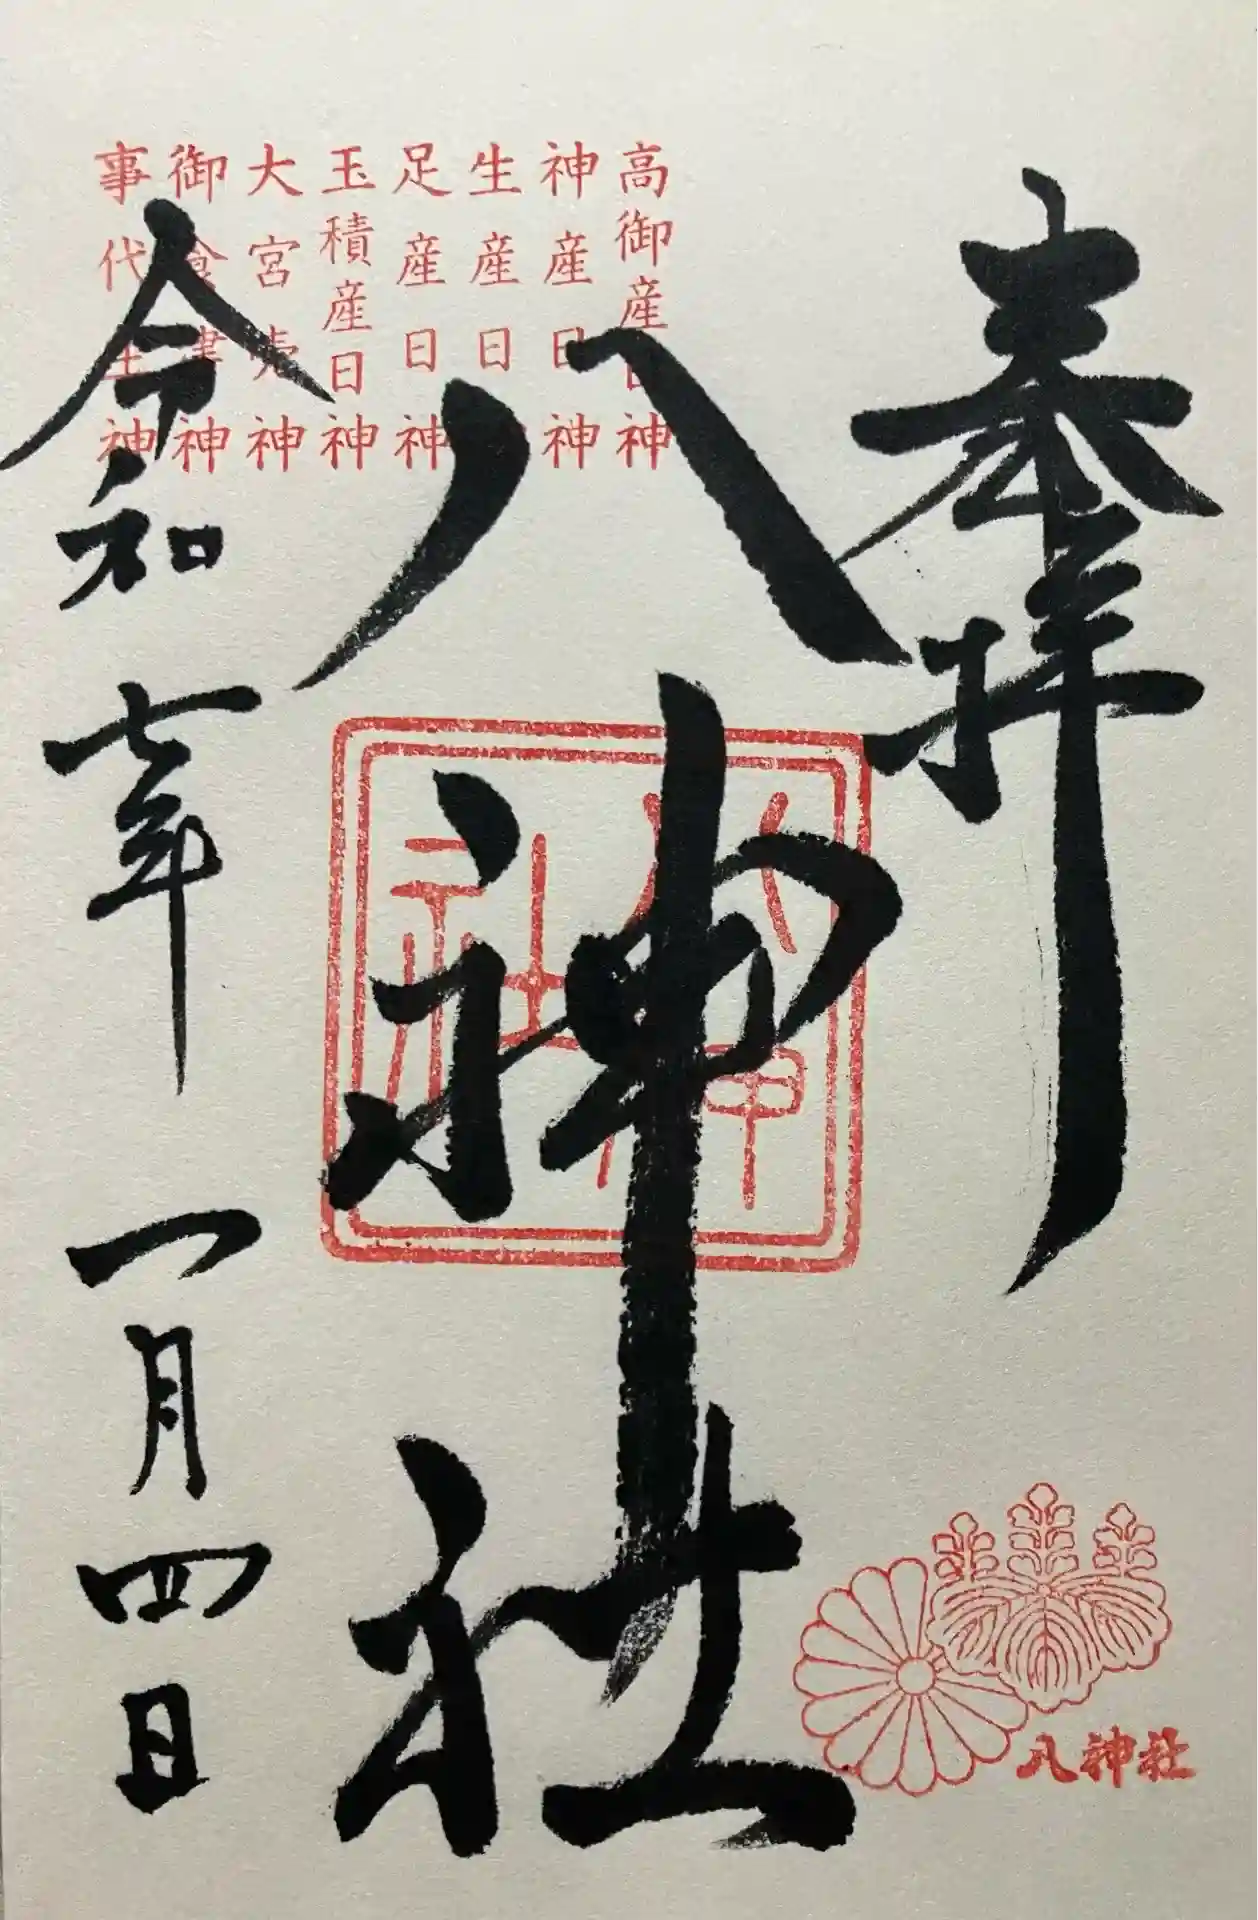 奉拝
高御産日神
神産日神
生産日神
足産日神
玉積産日神
大宮売神
御食津神
事代主神
八神社
八神社
令和七年一月四日
八神社